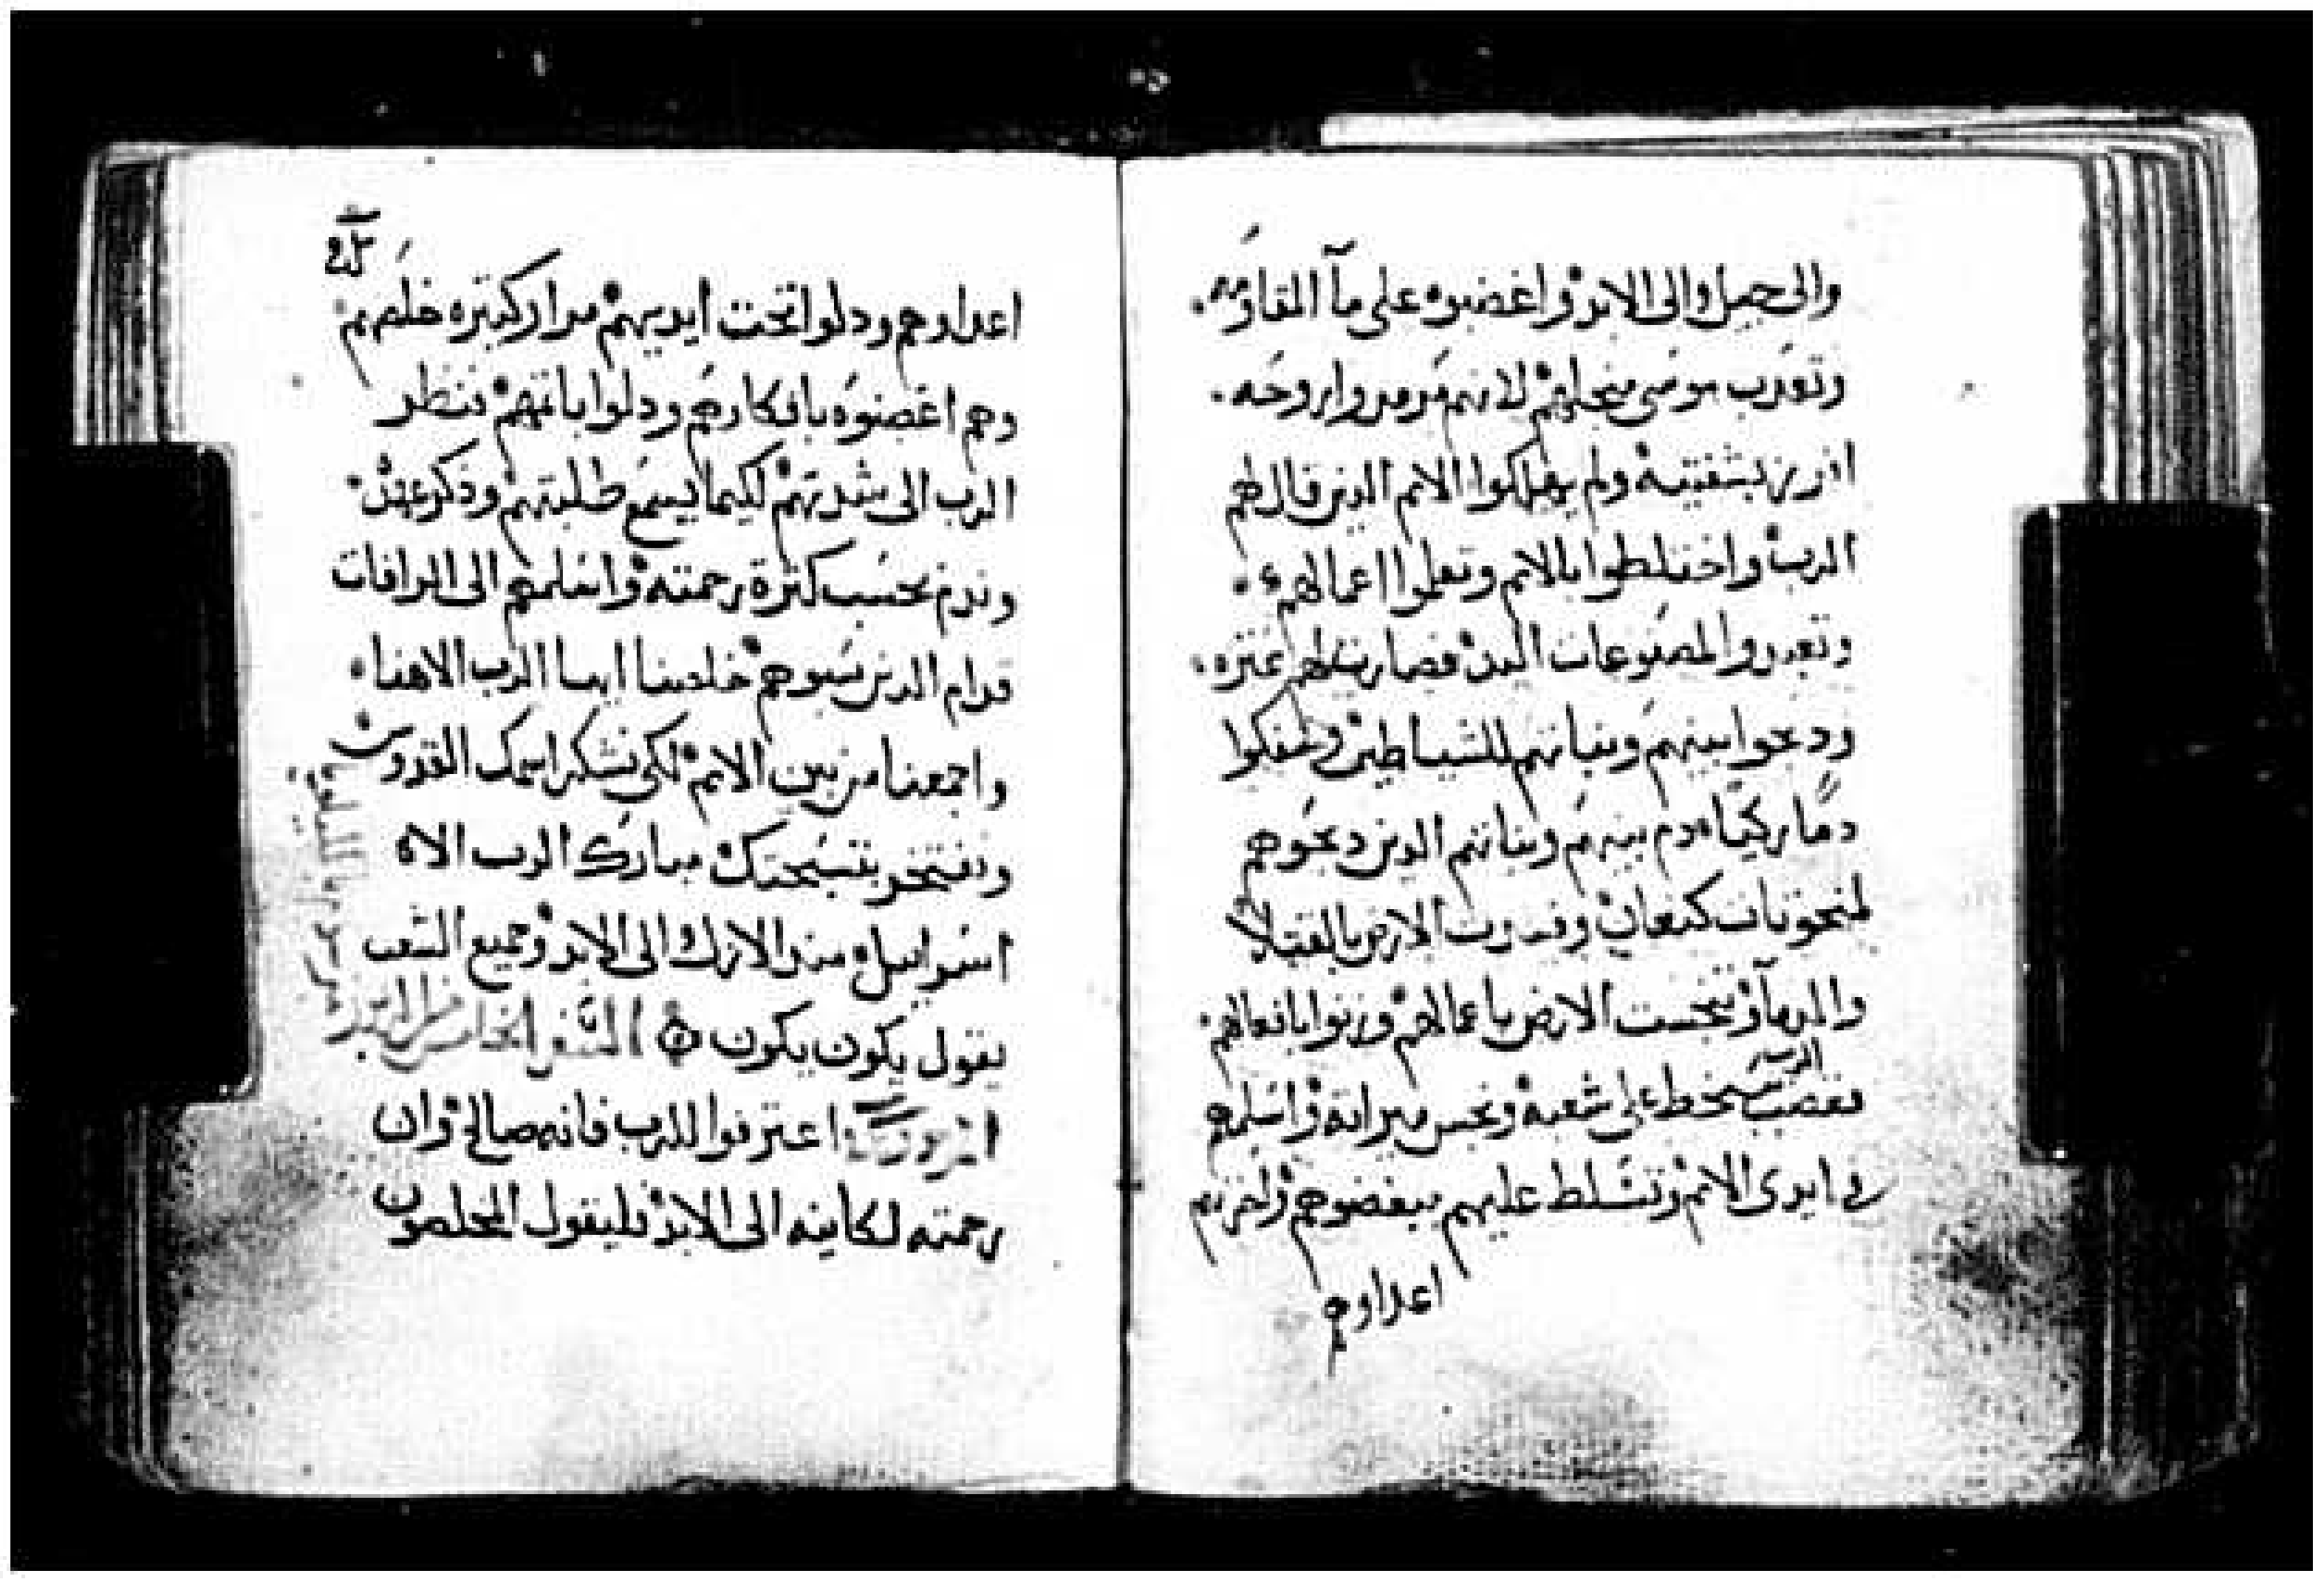 والى جيل والى الابد واغضبوه على مآ المقاومه
وتعذب موسى منجلهم لانهم مرمروا روحه
افرز بشفتيه ولم يهلكوا الامم الدين قال لهم
الرب واختلطوا بالامم وتعلموا اعمالهم
وتعبدوا لمصنوعات اليدين فصارت لهم عثره
ودبحوا بنيهم وبناتهم للشياطين وسفكوا
دما زكيا دم بنيهم وبناتهم الدين دبحوهم
لمنحوتات كنعان وفسدت الارض بالقتلا
والدمآ وتنجست الارض باعمالهم وزنوا بافعالهم
فغضب الرب بسخط على شعبه ونجس ميراثه واسلمهم
في ايدي الامم وتسلط عليهم مبغضوهم واحزنهم
اعداوهم
اعداوهم ودلوا تحت ايديهم مرار كتيره خلصهم
وهم اغضبوه بافكارهم ودلوا باتمهم فنظر
الرب الى شدتهم لكيما يسمع طلبتهم ودكر عهده
وندم بحسب كثرة رحمته واسلمهم الى الرافات
قدام الدين سبوهم خلصنا ايها الرب الاهنا
واجمعنا من بين الامم لكي نشكر اسمك القدوس
ونفتخر بتسبحتك مبارك الرب الاه
اسراييل مند الازل والى الابد وجميع الشعب
يقول يكون يكون السفر الخامس من المزامير
اعترفوا للرب فانه صالح وان
رحمته لكاينه الى الابد فليقول المخلصون